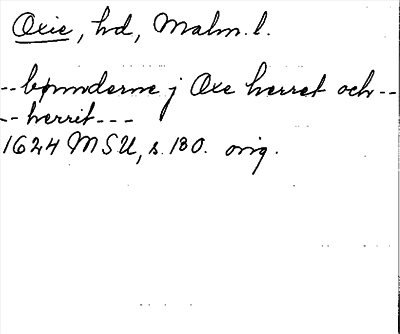 Oxie, hd, Malm. l.
-- bønnderne j Oxe herret och --
-- herrit ---
1624 MSU, s. 130. orig.